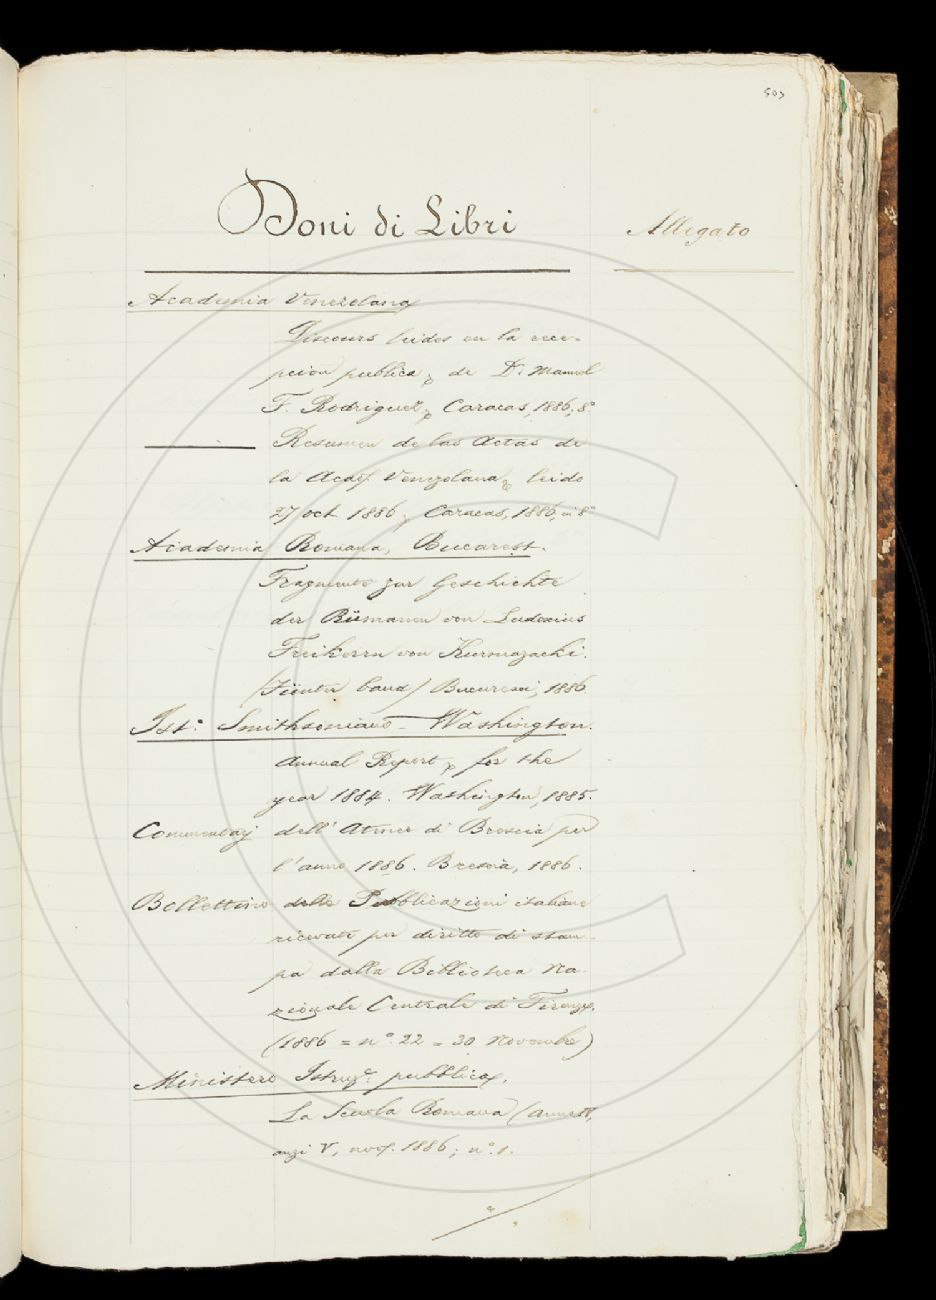 507
Doni di Libri
Allegato
Academia Venezelana
Discours leidos en la rece-
pcion publica, de Dr. Manuel
F. Rodriguez, Caracas, 1886, 8°
Resumen de las Actas de
la Acad. Venezolana, leido
27 oct. 1886, Caracas, 1886, in 8°
Academia Romana, Bucarest.
Fragmente zur Geschichte
der Rümanen von Eudoxius
Freiherrn von Hurmuzachi.
(Fünter band) Bucuresci, 1886.
Ist: Smithsoniano - Washington.
Annual Report, for the
year 1884. Washington, 1885.
Commentarj dell' Ateneo di Brescia per
l'anno 1886. Brescia, 1886.
Bollettino delle Pubblicazioni italiane
ricevute per diritto di stam-
pa dalla Biblioteca Na-
zionale Centrale di Firenze.
(1886 = n° 22 - 30 Novembre)
Ministero Istruz.e pubblica.
La Scuola Romana (anno IV,
anzi V, nov. 1886; n° 1.